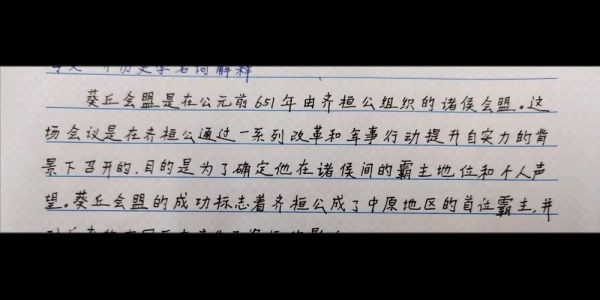 历史学名词解释
葵丘会盟是在公元前651年由齐桓公组织的诸侯会盟。这
场会议是在齐桓公通过一系列改革和军事行动提升自实力的背
景下召开的,目的是为了确定他在诸侯间的霸主地位和个人声
望。葵丘会盟的成功标志着齐桓公成了中原地区的首位霸主,并